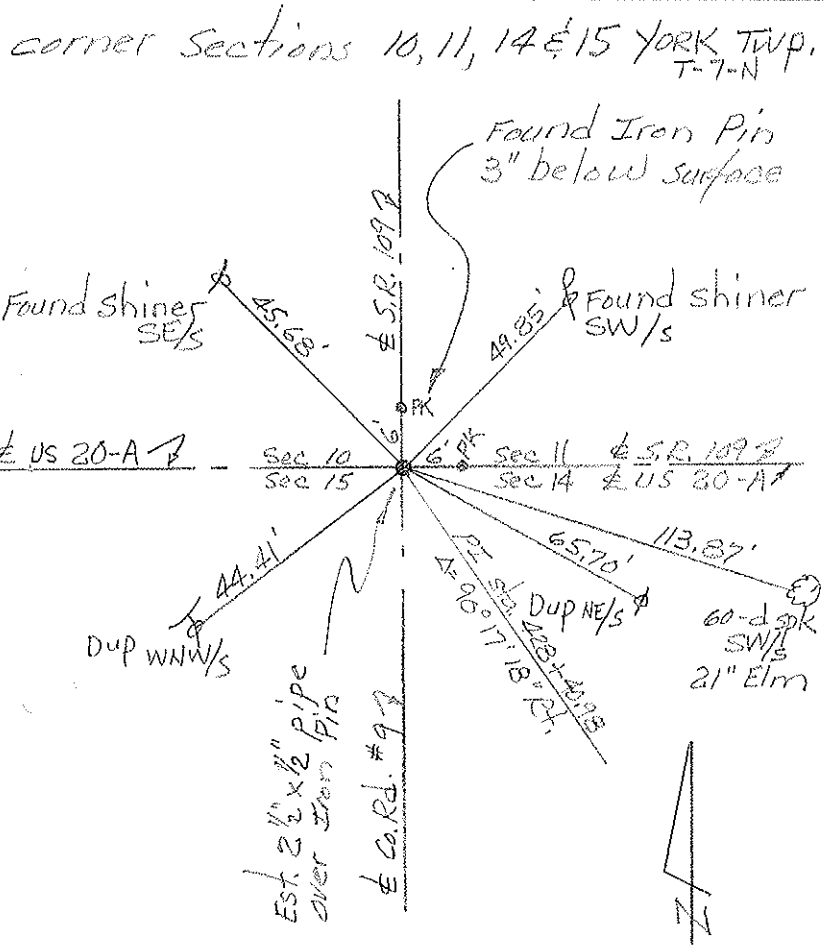 corner Sections 10, 11, 14 & 15 YORK TWP.
T-7-N
Found Iron Pin
3" below surface
℄ S.R. 109
Found Shiner
SE/s
45.68'
49.85'
Found shiner
SW/s
PK
6'
6'
PK
℄ US 20-A
Sec 10
Sec 15
Sec 11
Sec 14
℄ S.R. 109
℄ US 20-A
44.41'
Dup WNW/s
65.70'
Dup NE/s
113.87'
60-d spk
SW/s
21" Elm
PI sta. 428+40.98
Δ=90°17'18" Rt.
Est. 2½" x ½" pipe
over Iron Pin
℄ Co. Rd. #9
N